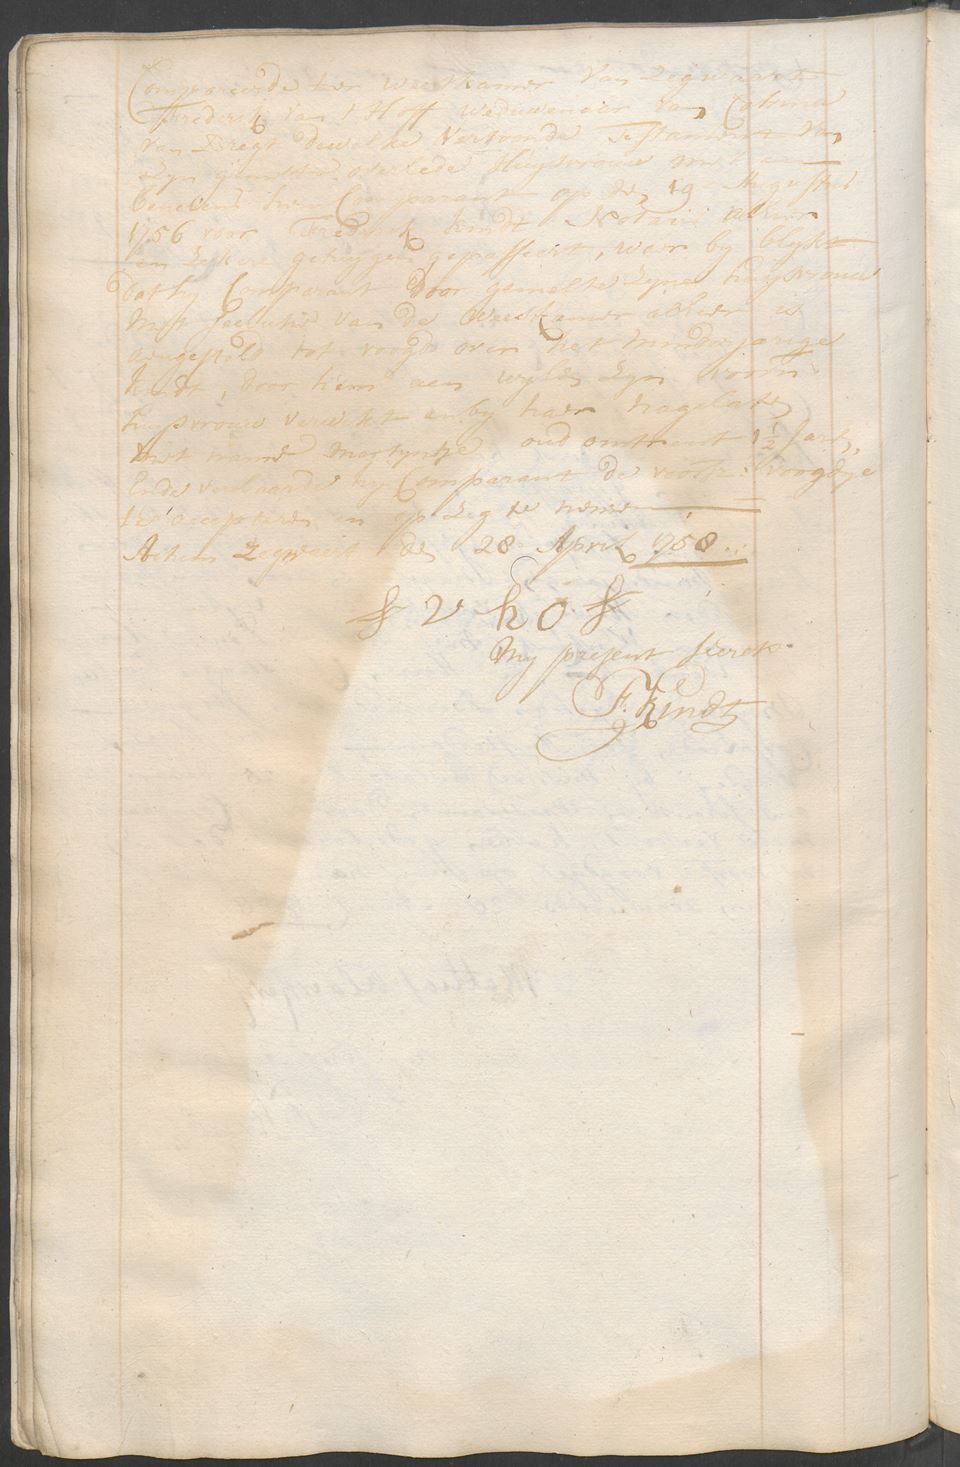 Compareerde ter weeskamer van Zegwaart
Frederik van 't Hoff weduwenaer van
van Dregt dewelke vertoonde Testament van
Zyn gemelte overlede Huysvrouw met en
benevens hem Comparant op den 19 Augustus
1756 voor Frederik Kindt Notaris alhier
en Zekere getuygen gepasseert, waer by blykt
dat hy Comparant door gemelte Zyne huysvrouw
met seclutie van de Weeskamer alhier is
aengestelt tot voogd over het minderjarige
kindt, door hem aen wylen Zyn voorn
huysvrouw verwekt en by haer nagelaten
met name Martyntje oud omtrent 1½ Jaer,
Ende verclaarde hy Comparant de voorsz: voogdye
te accepteren en op Zig te nemen,
Actum Zegwaert den 28 April 1758
F V H O F
My present secrets.
F. Kindt